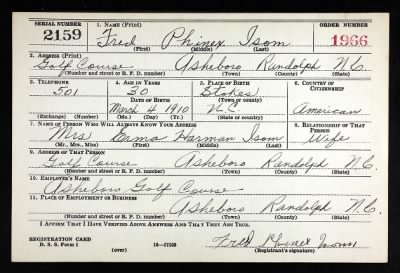 SERIAL NUMBER 1. NAME (Print) ORDER NUMBER
2159 Fred Phinex Isom 1966
(First) (Middle) (Last)
2. ADDRESS (Print)
Golf Course Asheboro Randolph N.C.
(Number and street or R. F. D. number) (Town) (County) (State)
3. TELEPHONE 4. AGE IN YEARS 5. PLACE OF BIRTH 6. COUNTRY OF CITIZENSHIP
501 30 Stokes
DATE OF BIRTH
March 4 1910 N.C. American
(Exchange) (Number) (Mo.) (Day) (Yr.) (State or country)
7. NAME OF PERSON WHO WILL ALWAYS KNOW YOUR ADDRESS 8. RELATIONSHIP OF THAT PERSON
Mrs Erma Harman Isom Wife
(Mr., Mrs., Miss) (First) (Middle) (Last)
9. ADDRESS OF THAT PERSON
Golf Course Asheboro Randolph N.C.
(Number and street or R. F. D. number) (Town) (County) (State)
10. EMPLOYER'S NAME
Asheboro Golf Course
11. PLACE OF EMPLOYMENT OR BUSINESS
Asheboro Randolph N.C.
(Number and street or R. F. D. number) (Town) (County) (State)
I AFFIRM THAT I HAVE VERIFIED ABOVE ANSWERS AND THAT THEY ARE TRUE.
REGISTRATION CARD
D. S. S. Form 1 16—17105 Fred Phinex Isom
(over) (Registrant's signature)